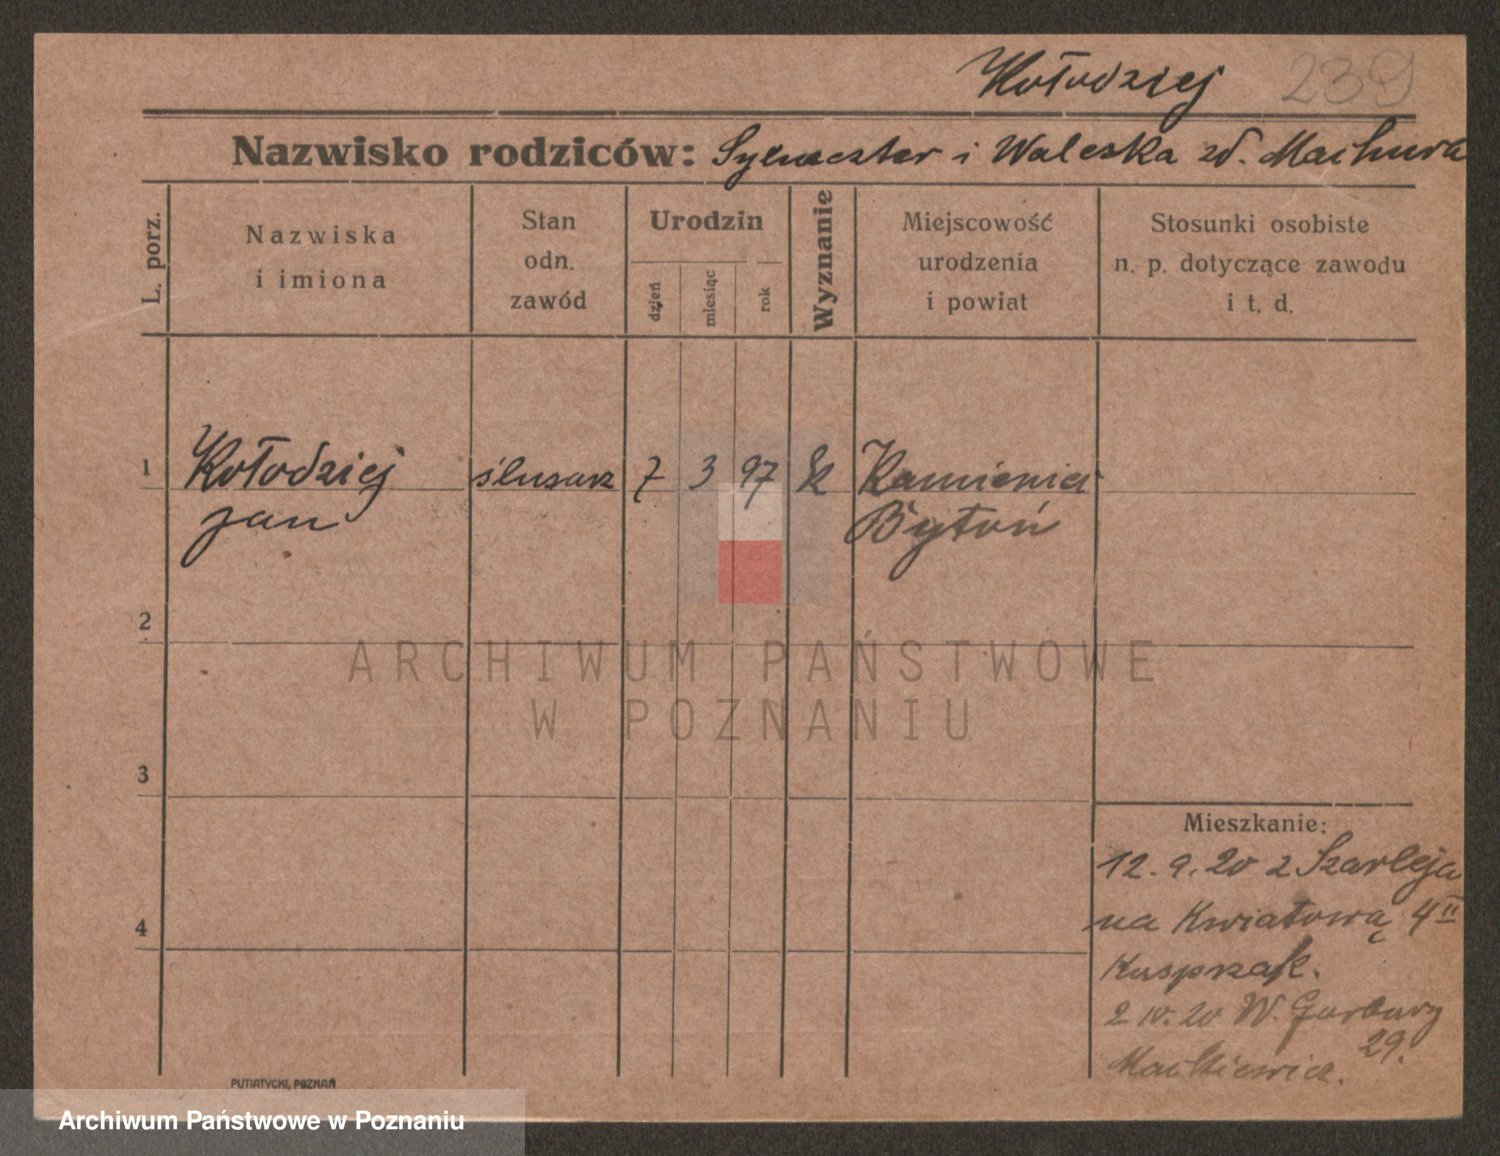 Kołodziej 239
Nazwisko rodziców: Sylwester i Waleska zd. Machura
L. porz.
Nazwiska
i imiona
Stan
odn.
zawód
Urodzin
dzień
miesiąc
rok
Wyznanie
Miejscowość
urodzenia
i powiat
Stosunki osobiste
n. p. dotyczące zawodu
i t. d.
1 Kołodziej ślusarz 7 3 97 k Kamienica
Jan Bytoń
2
ARCHIWUM PAŃSTWOWE
W POZNANIU
3
Mieszkanie:
12.9.20 z Szarleja
na Kwiatową 4 II
4
Kasprzak.
2 IV. 20 W. Garbary
29.
Maćkiewicz.
PUTIATYCKI, POZNAŃ
Archiwum Państwowe w Poznaniu